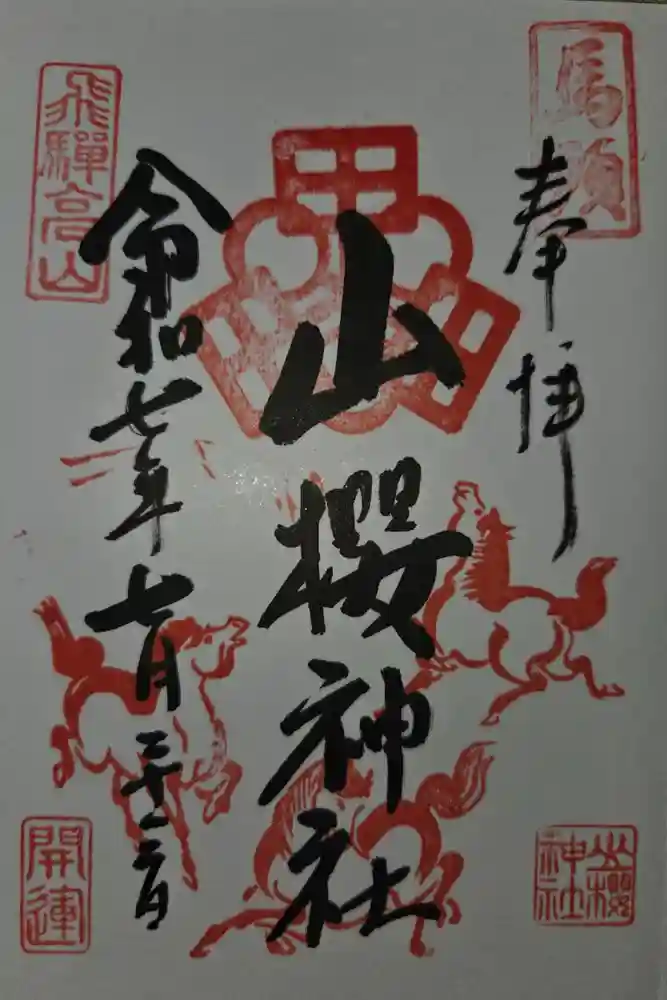 馬頭
奉拝
山櫻神社
山櫻神社
飛騨高山
令和七年七月二十二日
開運